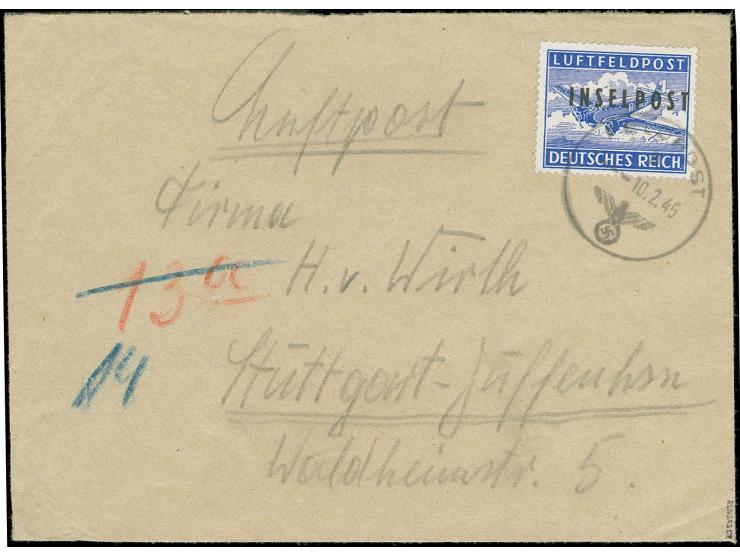 Luftpost
LUFTFELDPOST
INSELPOST
DEUTSCHES REICH
FELDPOST
10.2.45
Firma
13a
H. v. Wirth
14
Stuttgart-Zuffenhsn
Waldheimstr. 5.